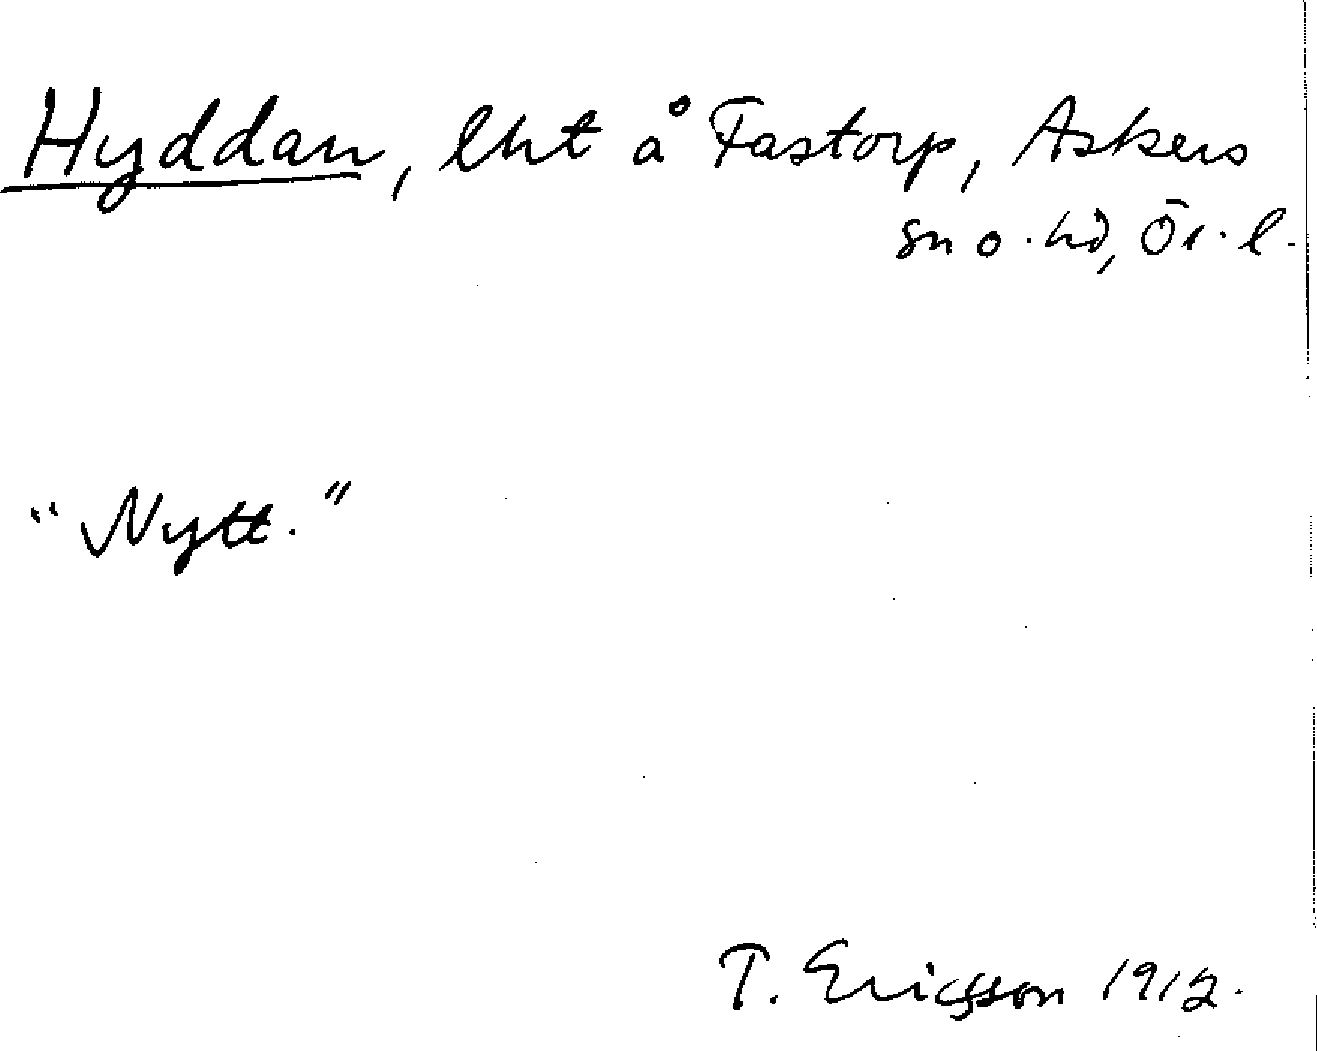 Hyddan, lht å Fastorp, Askers
sn o. hd, Ör. l.
"Nytt."
T. Ericsson 1912.